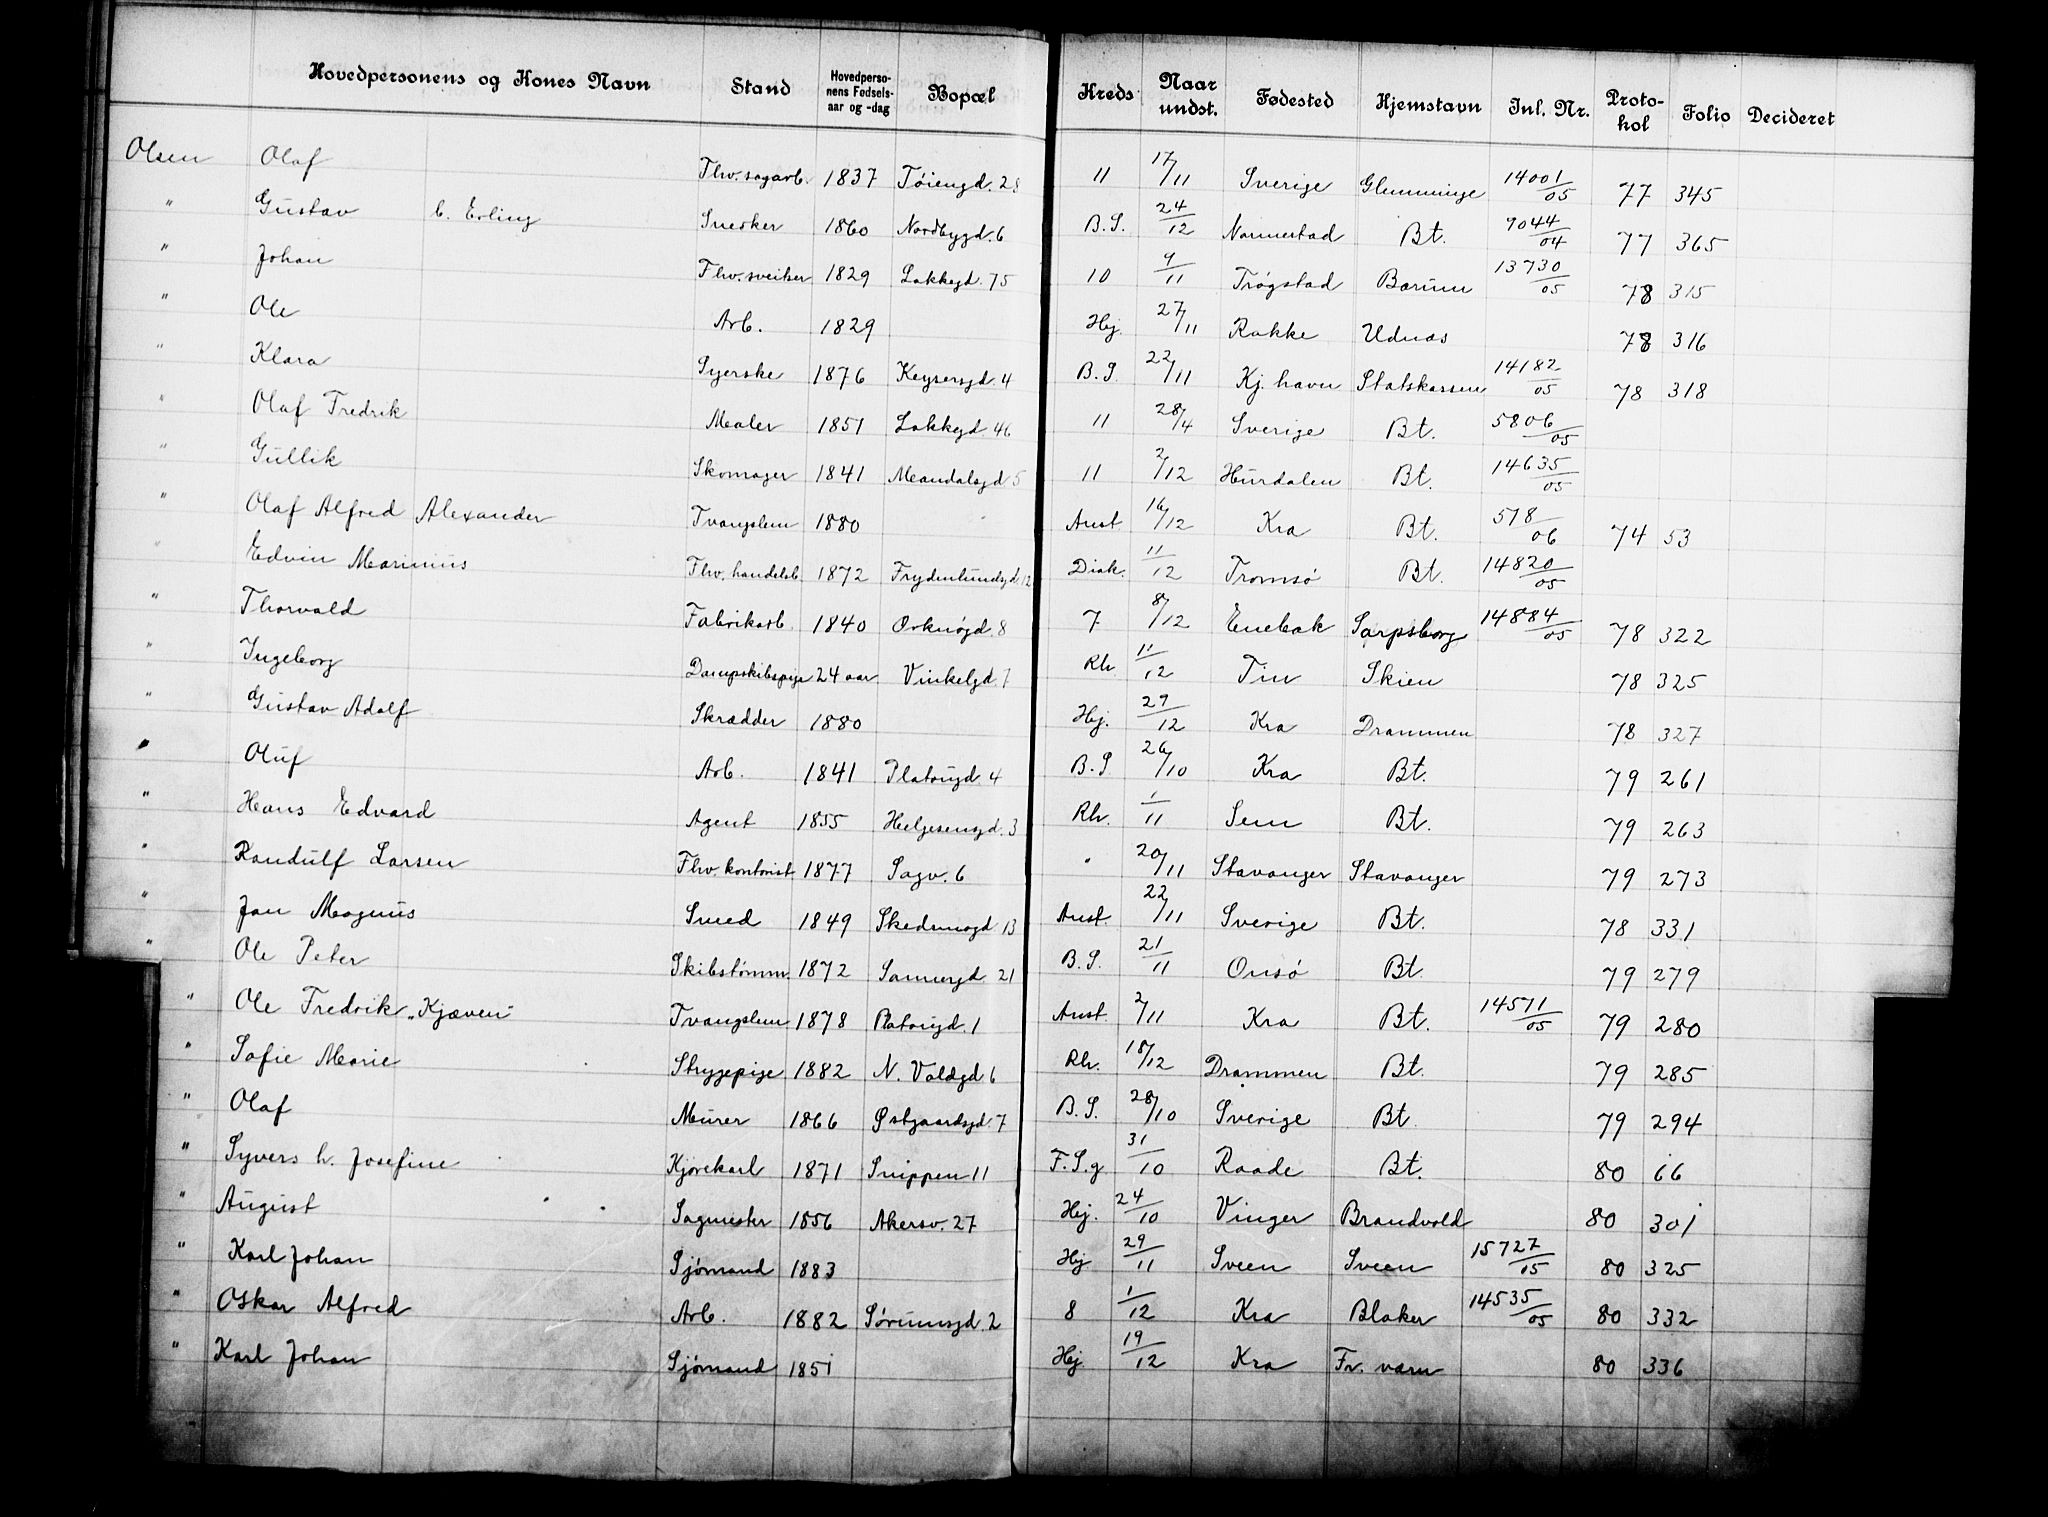 Hovedpersonens og Kones Navn Stand Hovedperso-nens Fødsels-aar og -dag Bopæl Kreds Naar undst. Fødested Hjemstavn Inl. Nr. Proto-kol Folio Decideret
Olsen Olaf Fhv. sagarb. 1837 Tøiengd. 28 11 17/11 Sverige Glumminge 14001/05 77 345
" Gustav b. Erling Snedker 1860 Nordbygd. 6 B.S. 24/12 Nannestad Bt. 9044/04 77 365
" Johan Fhv. sveitser 1829 Lakkegd. 75 10 9/11 Trøgstad Bærum 13730/05 78 315
" Ole Arb. 1829 Hej. 27/11 Rakke Udnæs 78 316
" Klara Syerske 1876 Keysersgd. 4 B.S. 22/11 Kj.havn Statskassen 14182/05 78 318
" Olaf Fredrik Maler 1851 Lakkegd. 46 11 28/4 Sverige Bt. 5806/05
" Gullik Skomager 1841 Mandalsgd. 5 11 2/12 Hurdalen Bt. 14635/05
" Olaf Alfred Alexander Tvangslem 1880 Anst. 16/12 Kra Bt. 518/06 74 53
" Edvin Marinius Fhv. handelsb. 1872 Frydenlundsgd. 12 Diak. 11/12 Tromsø Bt. 14820/05
" Thorvald Fabrikarb. 1840 Orknøgd. 8 7 8/12 Enebak Sarpsborg 14884/05 78 322
" Ingeborg Dampskibspige 24 aar Vinkelgd. 7 Rh. 11/12 Tin Skien 78 325
" Gustav Adolf Skrædder 1880 Hej. 29/12 Kra Drammen 78 327
" Oluf Arb. 1841 Platougd. 4 B.S. 26/10 Kra Bt. 79 261
" Hans Edvard Agent 1855 Helgesensgd. 3 Rh. 1/11 Sem Bt. 79 263
" Randulf Larsen Fhv. kontorist 1877 Sagv. 6 " 20/11 Stavanger Stavanger 79 273
" Jan Magnus Smed 1849 Skedsmogd. 13 Anst. 22/11 Sverige Bt. 78 331
" Ole Peter Skibstømm. 1872 Sannergd. 21 B.S. 21/11 Onsø Bt. 79 279
" Ole Fredrik „Kjæven" Tvangslem 1878 Platougd. 1 Anst. 2/11 Kra Bt. 14571/05 79 280
" Sofie Marie Strygepige 1882 N. Voldgd. 6 Rh. 18/12 Drammen Bt. 79 285
" Olaf Murer 1866 Østgaardsgd. 7 B.S. 28/10 Sverige Bt. 79 294
" Syvers h. Josefine Kjørekarl 1871 Snippen 11 F.S.g 31/10 Raade Bt. 80 66
" August Sagmester 1856 Akersv. 27 Hej. 24/10 Vinger Brandvold 80 301
" Karl Johan Sjømand 1883 Hej 29/11 Sveen Sveen 15727/05 80 325
" Oskar Alfred Arb. 1882 Sørumsgd. 2 8 1/12 Kra Blaker 14535/05 80 332
" Karl Johan Sjømand 1851 Hej 19/12 Kra Fr. værn 80 336